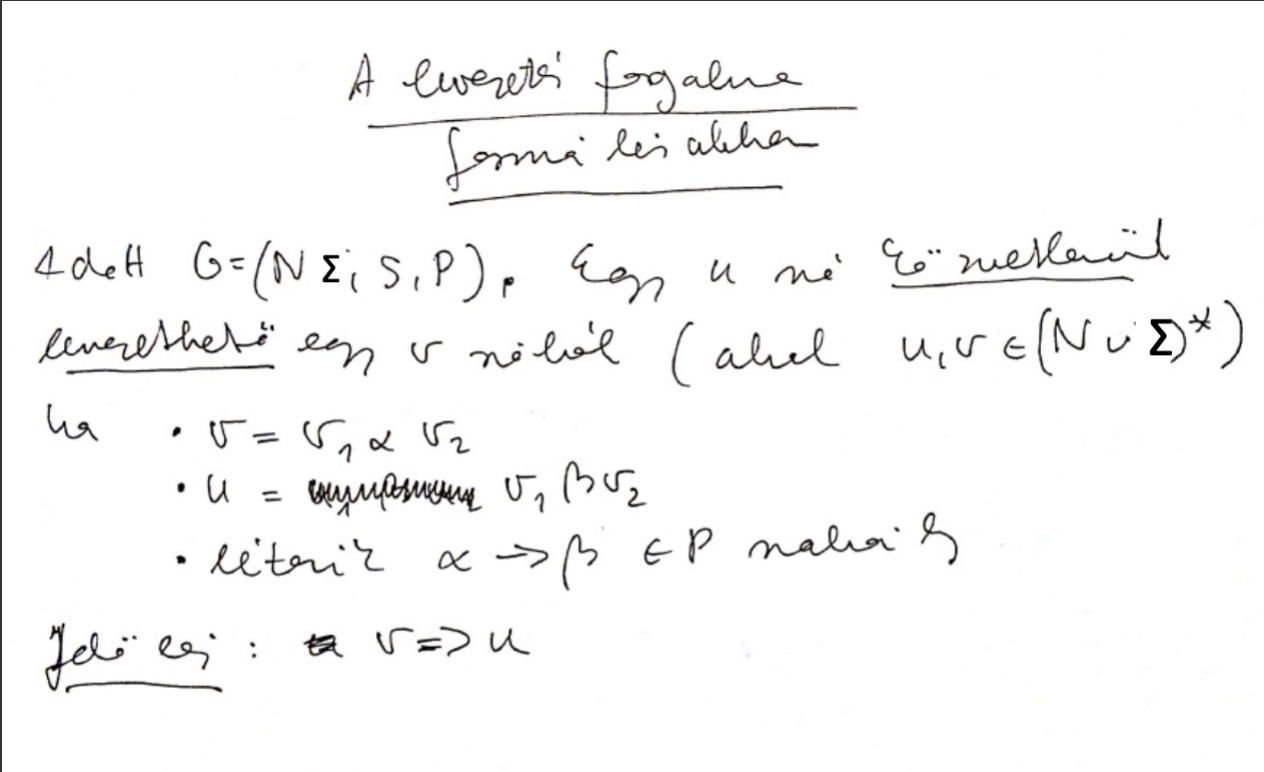 A levezetés fogalma
formálisabban
Adott G=(N Σ, S, P). Egy u szó közvetlenül
levezethető egy v szóból (ahol u,v ∈ (N ∪ Σ)*)
ha • v = v₁ α v₂
• u = v₁ β v₂
• létezik α → β ∈ P szabály
Jelölés : v => u